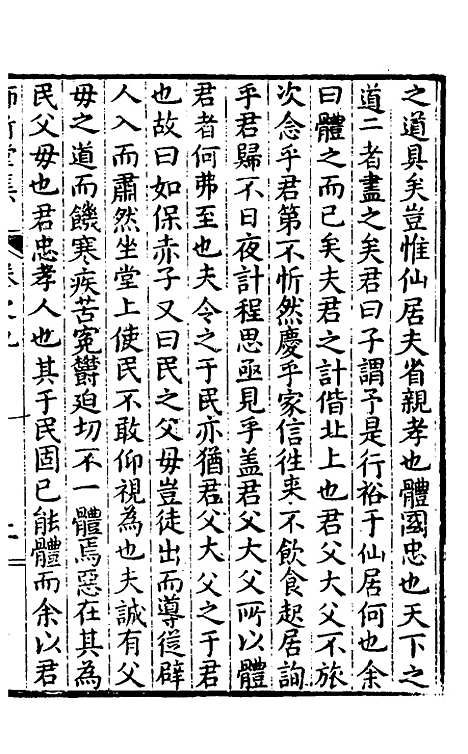 之道具矣豈惟仙居夫省親孝也體國忠也天下之
道二者盡之矣君曰子謂予是行裕于仙居何也余
曰體之而已矣夫君之計偕北上也君父大父不旅
次念乎君第不忻然慶乎家信徃来不飲食起居詢
乎君歸不日夜計程思亟見乎盖君父大父所以體
君者何弗至也夫令之于民亦猶君父大父之于君
也故曰如保赤子又曰民之父毋豈徒出而導從辟
人入而肅然坐堂上使民不敢仰視為也夫誠有父
毋之道而饑寒疾苦寃欝迫切不一體焉惡在其為
民父毋也君忠孝人也其于民固已能體而余以君